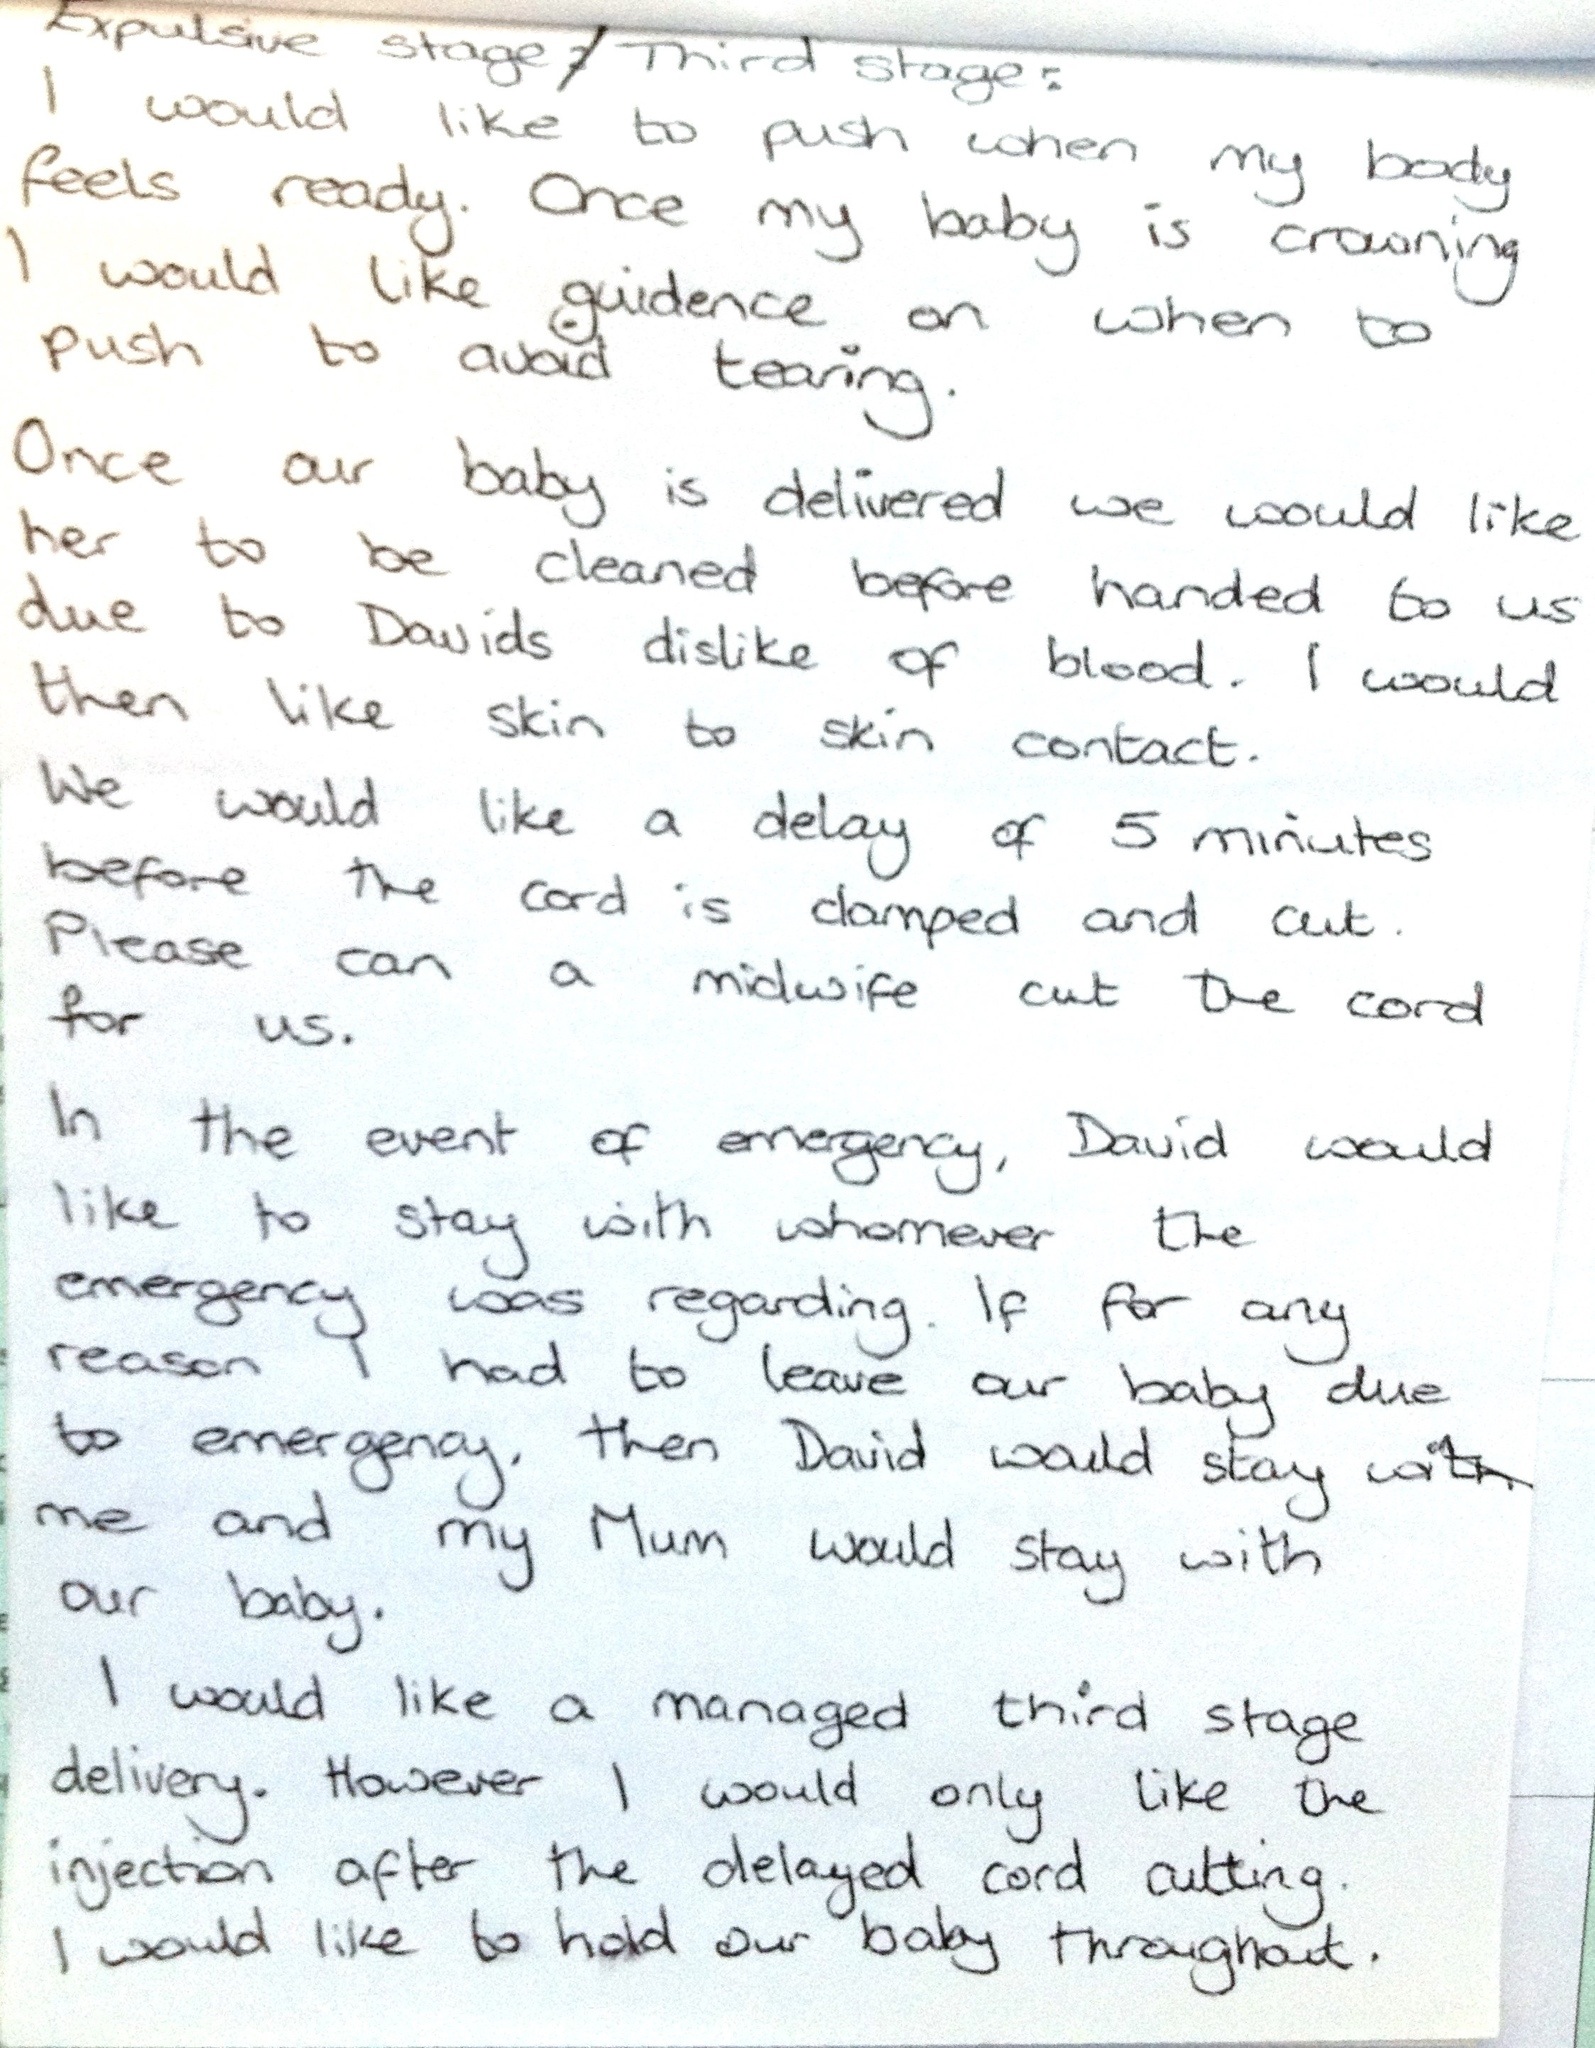 Expulsive stage / Third stage:
I would like to push when my body
feels ready. Once my baby is crowning
I would like guidence on when to
push to avoid tearing.
Once our baby is delivered we would like
her to be cleaned before handed to us
due to Davids dislike of blood. I would
then like skin to skin contact.
We would like a delay of 5 minutes
before the cord is clamped and cut.
Please can a midwife cut the cord
for us.
In the event of emergency, David would
like to stay with whomever the
emergency was regarding. If for any
reason I had to leave our baby due
to emergency, then David would stay with
me and my Mum would stay with
our baby.
I would like a managed third stage
delivery. However I would only like the
injection after the delayed cord cutting.
I would like to hold our baby throughout.